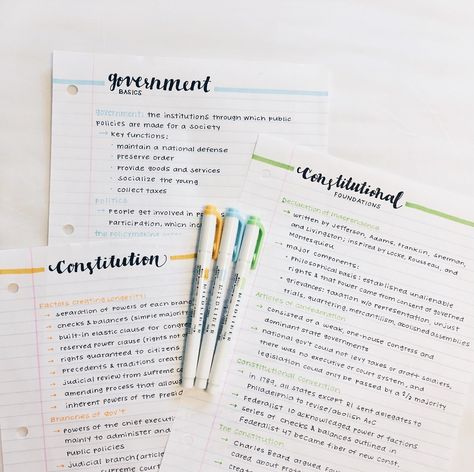 government
BASICS
government: the institutions through which public
policies are made for a society
→ key functions:
· maintain a national defense
· preserve order
· provide goods and services
· socialize the young
· collect taxes
politics
→ people get involved in
participation, which
the policymaking
Constitutional
FOUNDATIONS
Declaration of Independence
→ written by Jefferson, Adams, Franklin, Sherman,
and Livingston; inspired by Locke, Rousseau, and
Montesquieu
→ major components:
· philosophical basis: established unalienable
rights & that power came from consent of governed
· grievances: taxation w/o representation, unjust
trials, quartering, mercantilism, abolished assemblies
Articles of Confederation
→ consisted of a weak, one-house congress and
dominant state governments
→ national gov't could not levy taxes or draft soldiers,
there was no executive or court system, and
legislation could only be passed by a 2/3 majority
Constitutional Convention
→ In 1787, all states except RI sent delegates to
Philadelphia to revise/abolish AoC
→ Federalist 10 acknowledged power of factions
→ Series of checks & balances outlined in
Federalist 51 became fiber of new const.
The Constitution
→ Charles Beard argued
cared about
Constitution
Factors Creating Longevity:
→ separation of powers of each branch
→ checks & balances (simple majority
→ built-in elastic clause for Congress
→ reserved power clause (rights not
→ rights guaranteed to citizens
→ precedents & traditions
→ judicial review from supreme
→ amending process that allows
→ inherent powers of the
Branches of gov't
→ Powers of the chief
mainly to administer and
public policies
→ Judicial branch (article
supreme court
MILDLINER
MILDLINER
MILDLINER